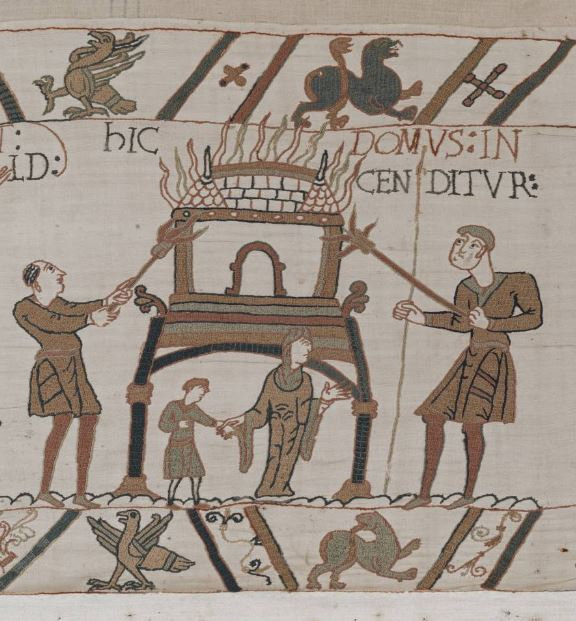 LD:
hIC DOMVS: IN
CEN DITVR: